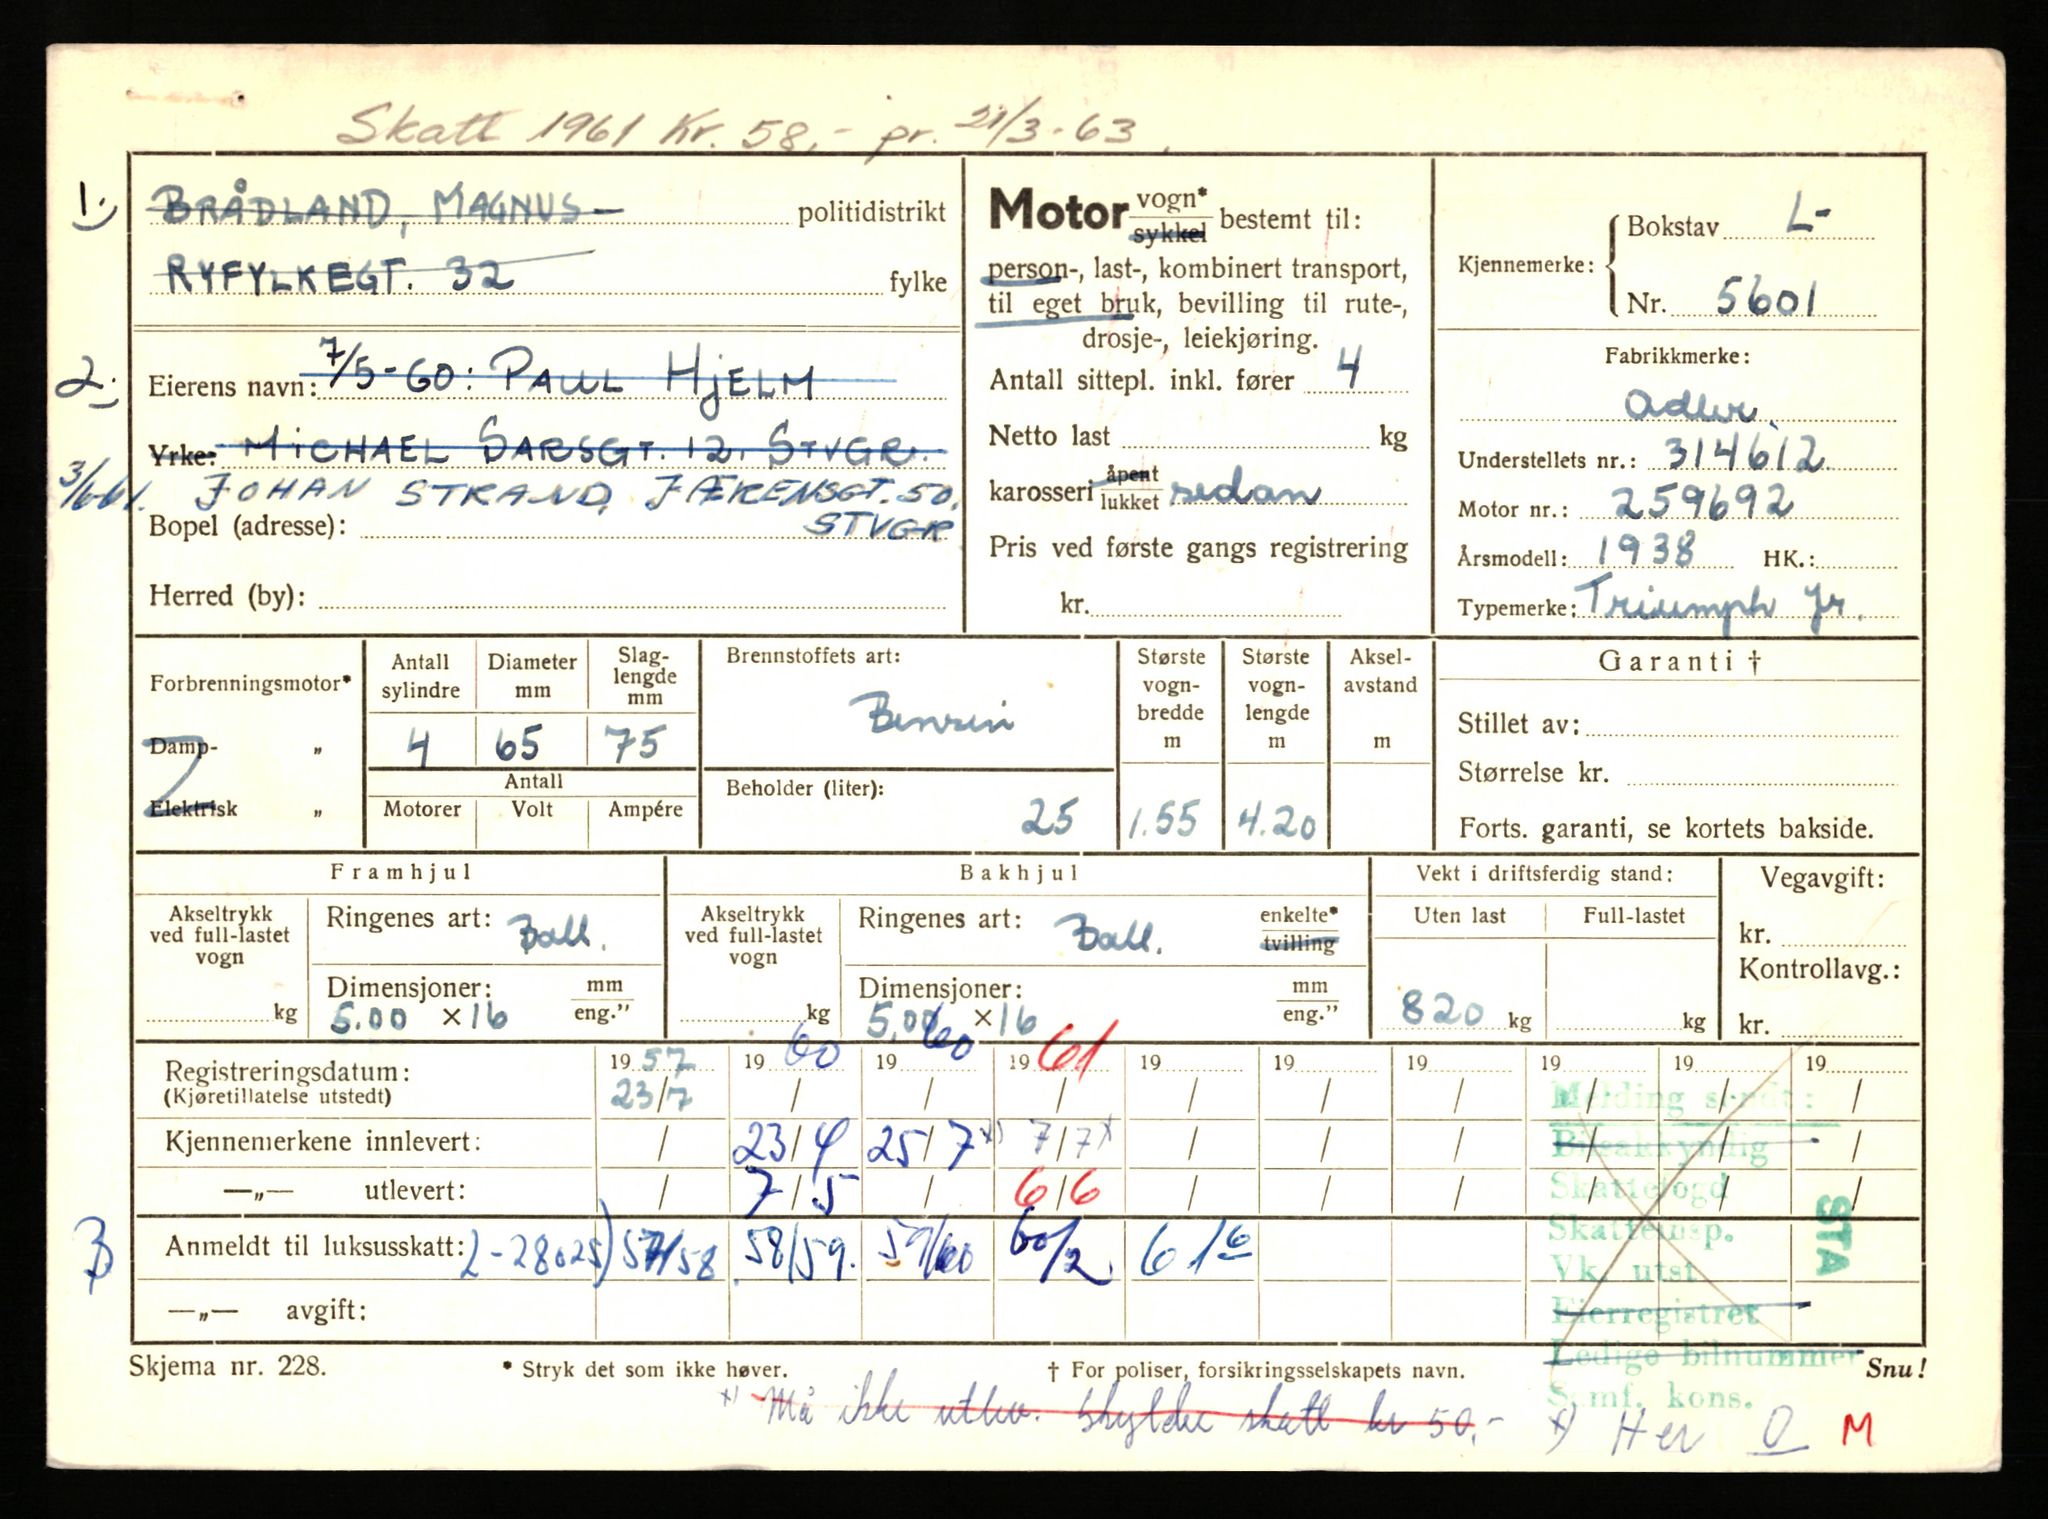 Skatt 1961 Kr. 58,- pr. 21/3-63
1. BRÅDLAND, MAGNUS politidistrikt
RYFYLKEGT. 32 fylke
2. Eierens navn: 7/5-60: PAUL HJELM
Yrke: MICHAEL SARSGT. 12. STVGR.
3/6-61. JOHAN STRAND, JÆRENSGT. 50,
Bopel (adresse): STVGR
Herred (by):
Motor vogn* sykkel bestemt til:
person-, last-, kombinert transport,
til eget bruk, bevilling til rute-,
drosje-, leiekjøring.
Antall sittepl. inkl. fører 4
Netto last kg
karosseri åpent lukket sedan
Pris ved første gangs registrering
kr.
Kjennemerke: Bokstav L-
Nr. 5601
Fabrikkmerke:
Adler
Understellets nr.: 314612
Motor nr.: 259692
Årsmodell: 1938 HK.:
Typemerke: Triumph Jr.
Forbrenningsmotor*
Damp- „
Elektrisk „
Antall sylindre Diameter mm Slag-lengde mm
4 65 75
Antall
Motorer Volt Ampére
Brennstoffets art:
Bensin
Beholder (liter):
25
Største vogn-bredde m Største vogn-lengde m Aksel-avstand m
1.55 4.20
Garanti †
Stillet av:
Størrelse kr.
Forts. garanti, se kortets bakside.
Framhjul
Akseltrykk ved full-lastet vogn
kg
Ringenes art: Ball.
Dimensjoner: mm
5.00 × 16 eng."
Bakhjul
Akseltrykk ved full-lastet vogn
kg
Ringenes art: Ball. enkelte* tvilling
Dimensjoner: mm
5.00 × 16 eng."
Vekt i driftsferdig stand:
Uten last Full-lastet
820 kg kg
Vegavgift:
kr.
Kontrollavg.:
kr.
Registreringsdatum: 19 57 19 60 19 60 19 61 19 19 19 19 19 19
(Kjøretillatelse utstedt) 23/7 / / / / / / / / /
Kjennemerkene innlevert: / 23/4 25/7 x) 7/7 x / / / / / /
—„— utlevert: / 7/5 / 6/6 / / / / / /
Anmeldt til luksusskatt: L-28025) 57/58 58/59. 59/60 60/2. 61 6
—„— avgift:
Melding sendt:
Bilsakkyndig
Skattefogd
Skatteinsp.
Vk. utst
Eierregistret
Ledige bilnummer
Semf. kons.
STA
Skjema nr. 228.
* Stryk det som ikke høver.
† For poliser, forsikringsselskapets navn.
Snu!
x) Må ikke utlev. skylder skatt kr 50,-
x) Her O M